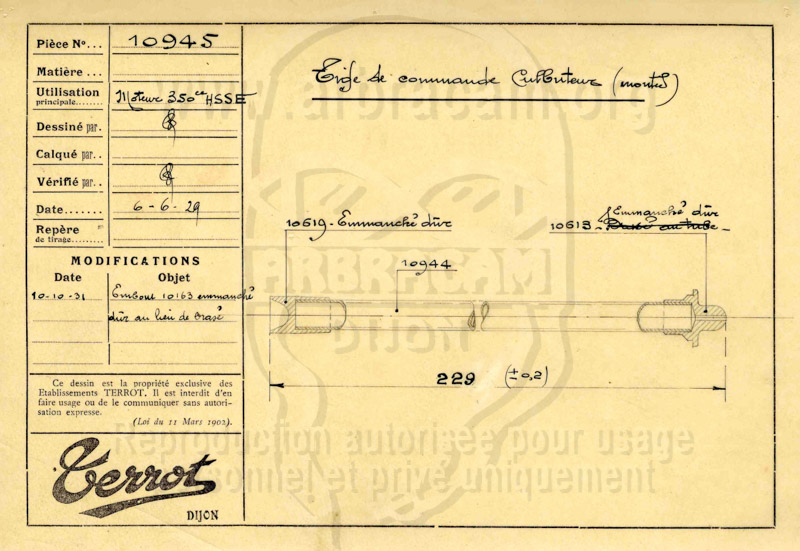 Pièce Nº... 10945
Matière...
Utilisation principale........ Moteur 350cc HSSE
Dessiné par.
Calqué par..
Vérifié par..
Date....... 6-6-29
Repère de tirage.........
MODIFICATIONS
Date Objet
10-10-31 Embout 10163 emmanché
dûr au lieu de brasé
Ce dessin est la propriété exclusive des
Etablissements TERROT. Il est interdit d'en
faire usage ou de le communiquer sans autori-
sation expresse.
(Loi du 11 Mars 1902).
Terrot
DIJON
Tige de commande Culbuteurs (montée)
10619 - Emmanché dûr
Emmanché dûr
10613 - Brasé au tube -
10944
229 (± 0,2)
www.arbracam.org
ARBRACAM
DIJON
Reproduction autorisée pour usage
personnel et privé uniquement